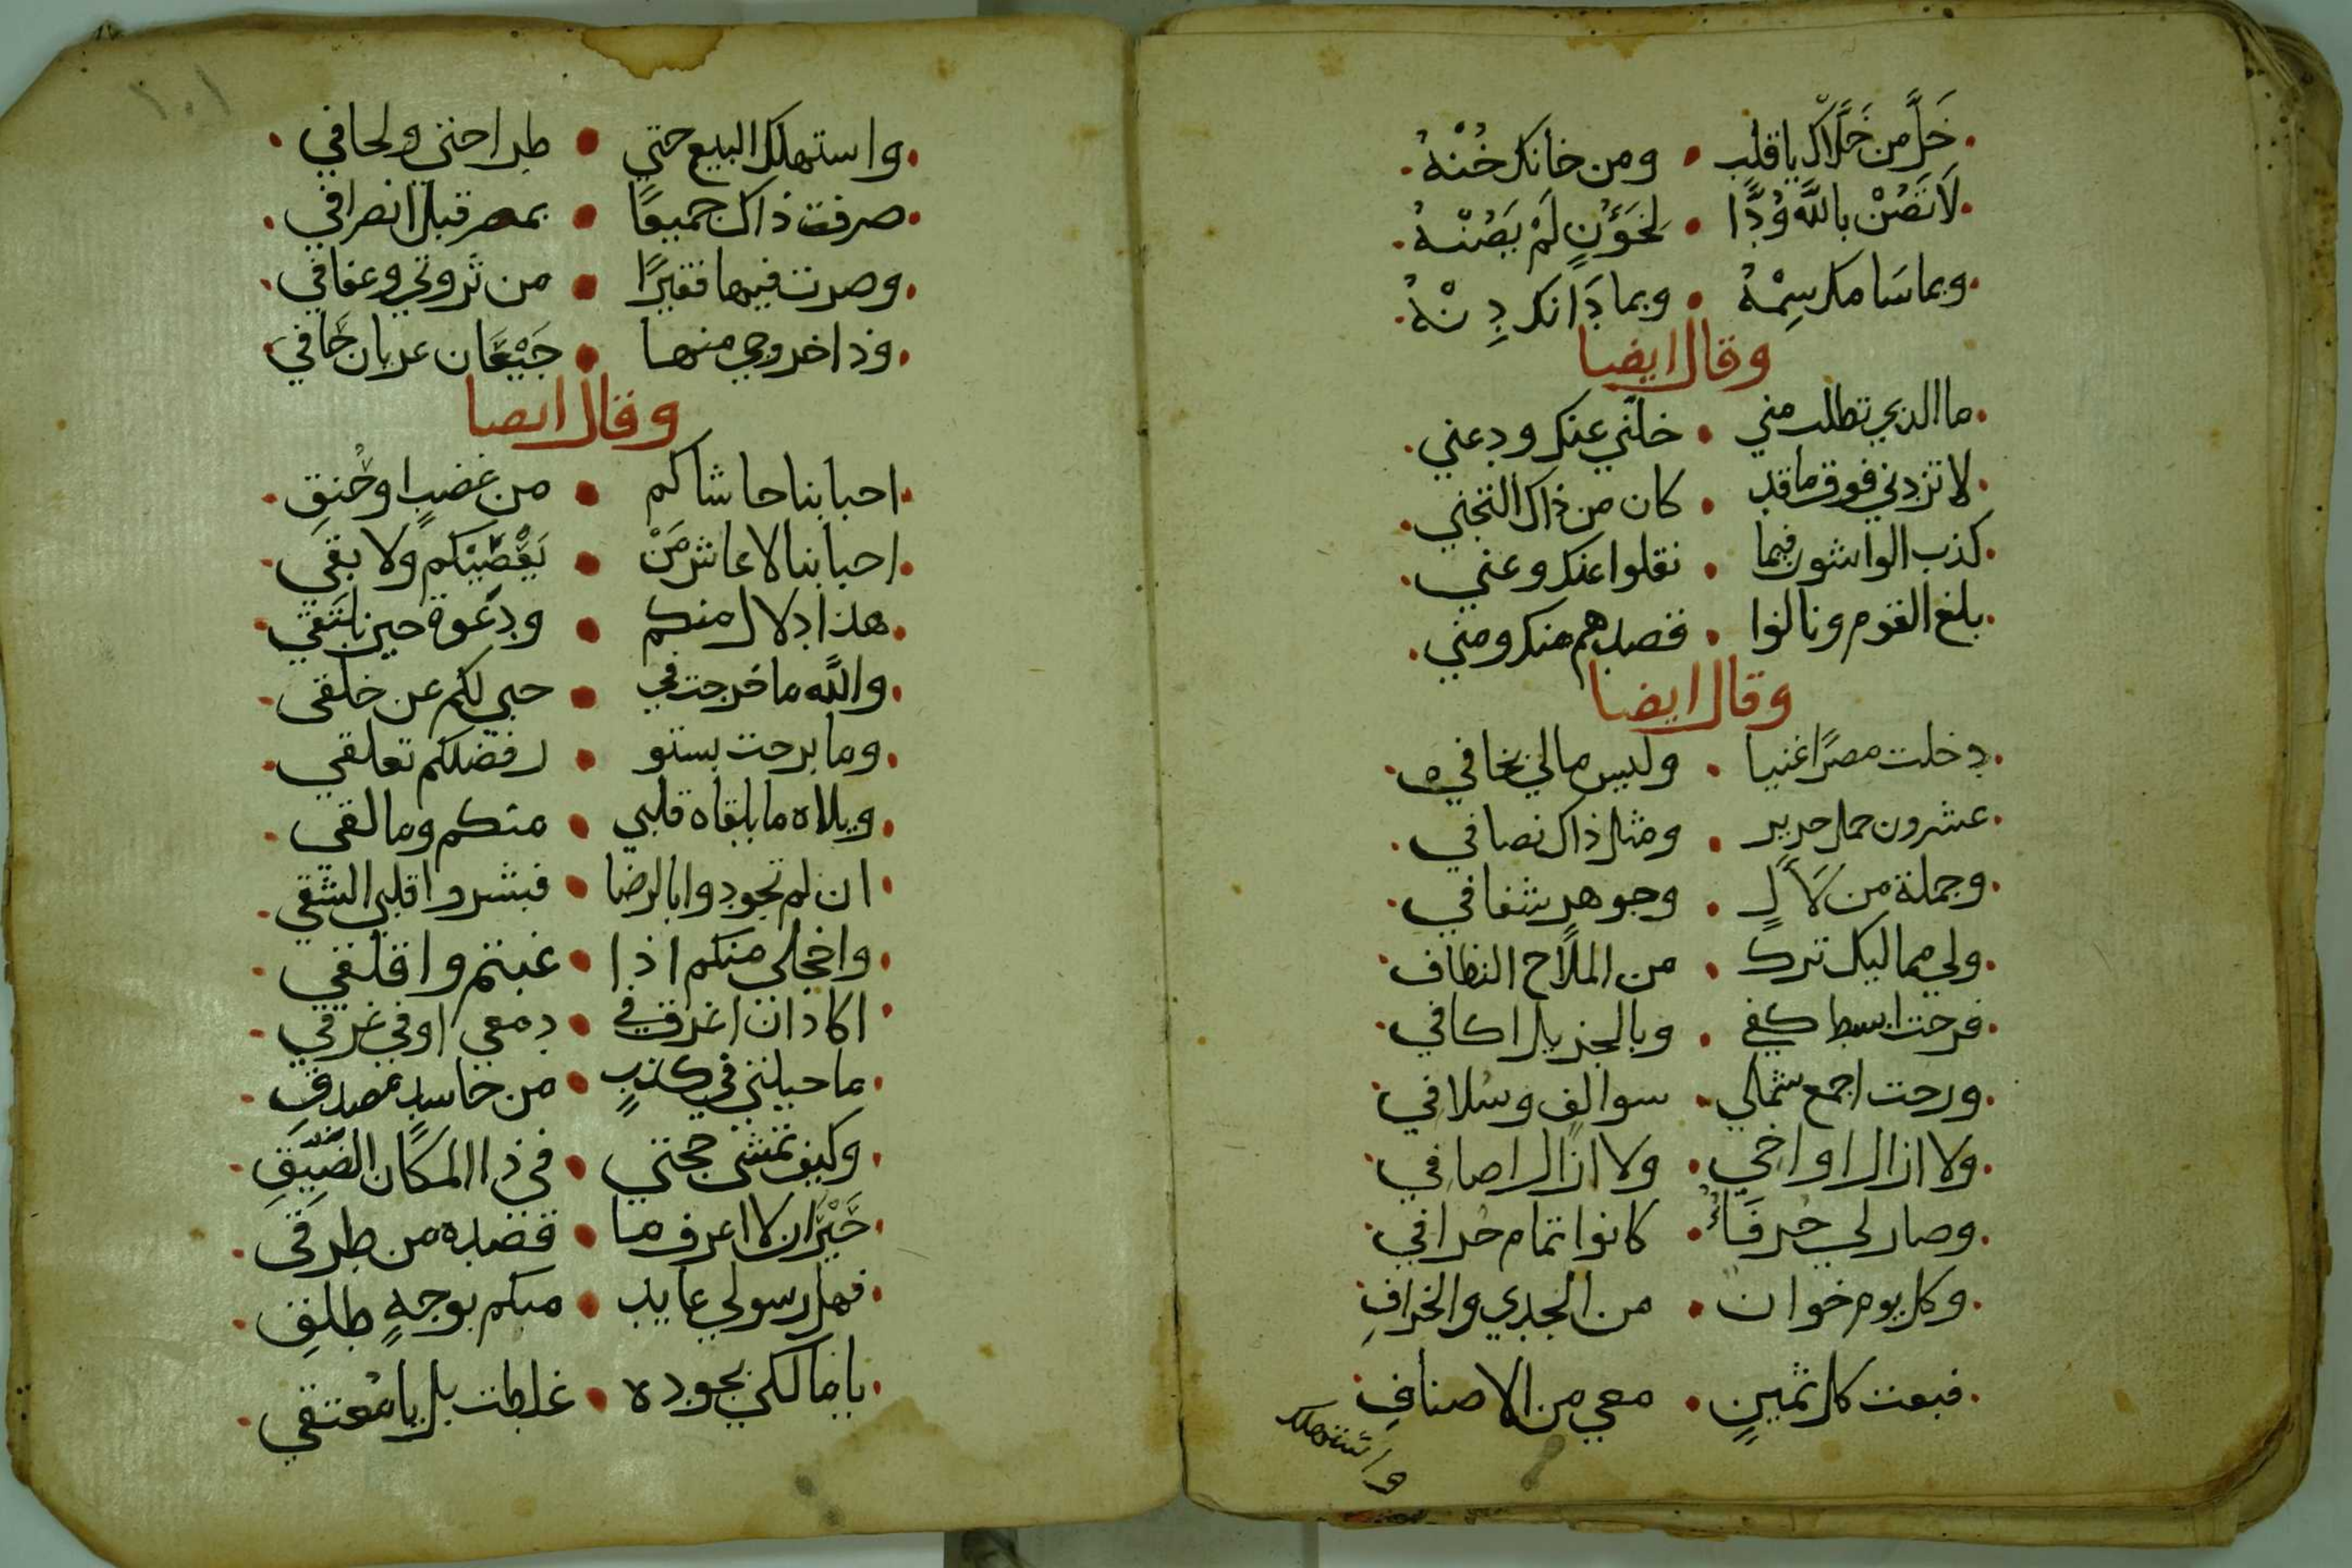 خَلِّ من خَلَّاكَ يا قلب • ومن خانك خُنْهُ
لَا تَصُنْ باللّه وُدًّا • لِخَؤنٍ لَمْ يَصُنْهُ
وبما سَامك سِمْهُ • وبما دَانك دِنْهُ
وقال ايضا
ما الذي تطلب مني • خلّني عنك ودعني
لا تزدني فوق ما قد • كان من ذاك التجني
كذب الواشون فيما • نقلوا عنك وعني
بلغ القوم ونالوا • قصدهم منك ومني
وقال ايضا
دخلت مصرًا غنيا • وليس مالي بخافي
عشرون حمل حرير • ومثل ذاك نصافي
وجملة من لَأَلٍ • وجوهر شفافي
ولي مماليك ترك • من الملاح النظاف
فرحت ابسط كفي • وبالجزيل اكافي
ورحت اجمع شملي • سوالف وسلافي
ولا ازال اواخي • ولا ازال اصافي
وصار لي حُرفَاءُ • كانوا تمام حُرافي
وكل يوم خوان • من الجدي والخرافِ
فبعت كل ثمينٍ • معي من الاصنافِ
واستهلك
١٠١
واستهلك البيع حتي • طراحتي ولحافي
صرفت ذاك جميعًا • بمصر قبل انصرافي
وصرت فيها فقيرًا • من ثروتي وعفافي
وذا خروجي منها • جَيْعَان عريان حَافي
وقال ايضا
احبابنا حاشاكم • من غضبٍ او حُنقِ
احبابنا لا عاش مَنْ • يَغْضِبْكم ولا بقي
هذا دلال منكم • ودَعوه حين نلتقي
واللَّه ما خرجت في • حبي لكم عن خلقي
وما برحت بستو • رفضلكم تعلقي
ويلاه ما يلقاه قلبي • منكم وما لقي
ان لم تجودوا بالرضا • فبشروا قلبي الشقي
واخجلي منكم اذا • غبتم واقلقي
اكاد ان اغرق في • دمعي او في عَرقي
ما حيلتي في كذبٍ • من حاسدٍ مصدقِ
وكيف تمشي حجتي • في ذا المكان الضَّيِّقِ
حَيْرَان لا اعرف ما • قصده من طرقي
فهل رسولي عايد • منكم بوجهٍ طلقِ
يا مالكي بجوده • غلطت بل يا مُعتقي